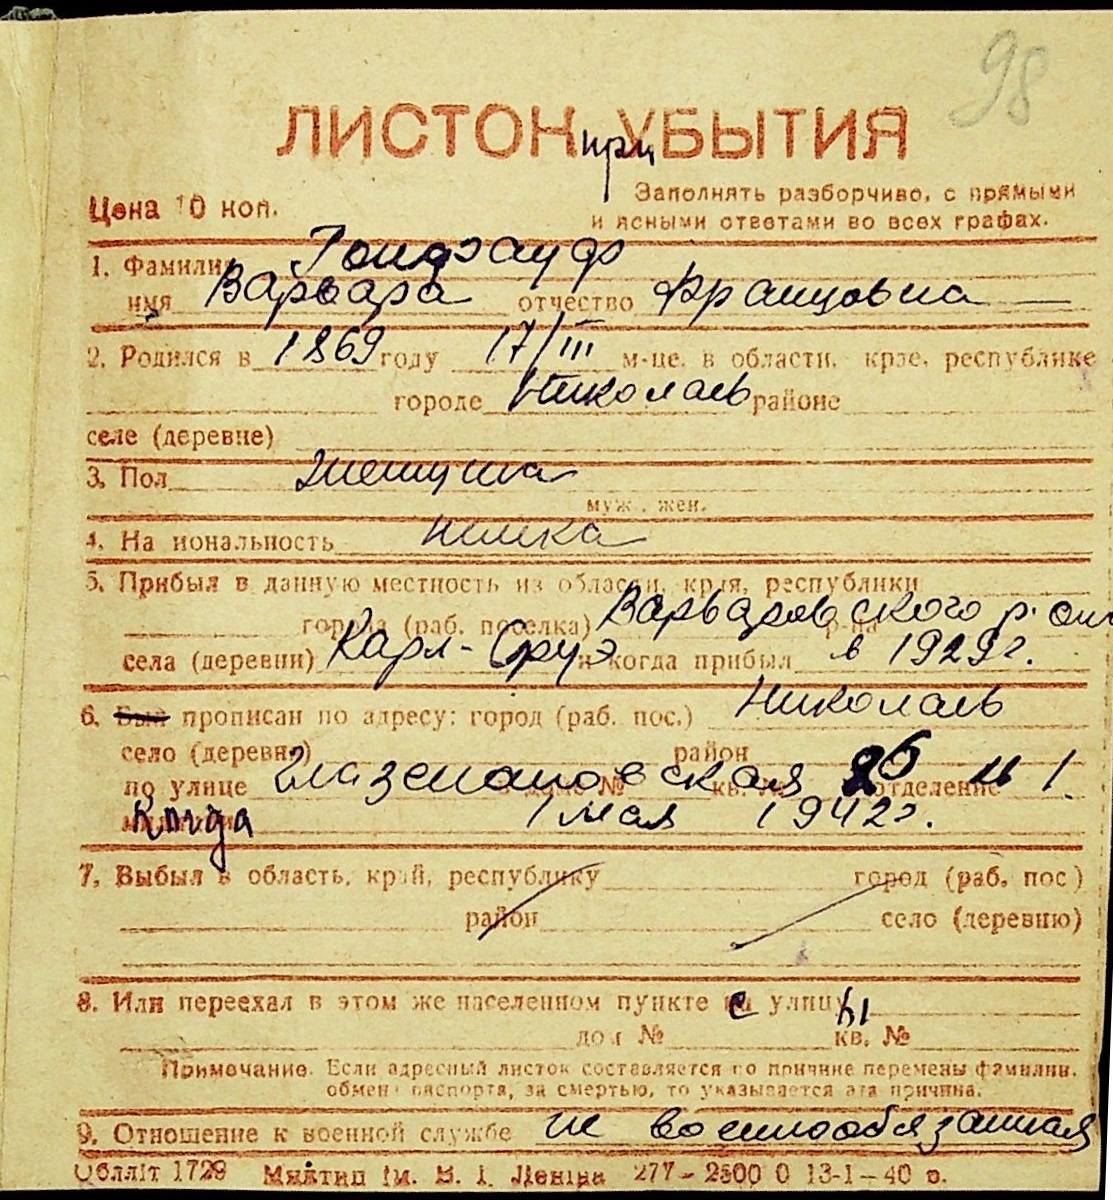 98
ЛИСТОК УБЫТИЯ
при
Цена 10 коп.
Заполнять разборчиво, с прямыми
и ясными ответами во всех графах.
1. Фамилия
имя Варвара отчество Францовна
2. Родился в 1869 году 17/III м-це, в области, крае, республике
городе Николаев районе
селе (деревне)
3. Пол Женщина
муж., жен.
4. На иональность немка
5. Прибыл в данную местность из области, края, республики
города (раб. поселка) Варваровского р-на
села (деревни) Карл-Сруэ и когда прибыл в 1929 г.
6. Был прописан по адресу: город (раб. пос.) Николаев
село (деревня) район
по улице 26 кв. № отделение 1.
Когда 1 мая 1942 г.
7. Выбыл в область, край, республику город (раб. пос)
район село (деревню)
8. Или переехал в этом же населенном пункте с улицы
дом № кв. №
Примечание. Если адресный листок составляется по причине перемены фамилии,
обмена паспорта, за смертью, то указывается эта причина.
9. Отношение к военной службе не военнообязанная
Облліт 1729 Миктип ім. В. І. Леніна 277–2500 0 13-1–40 р.